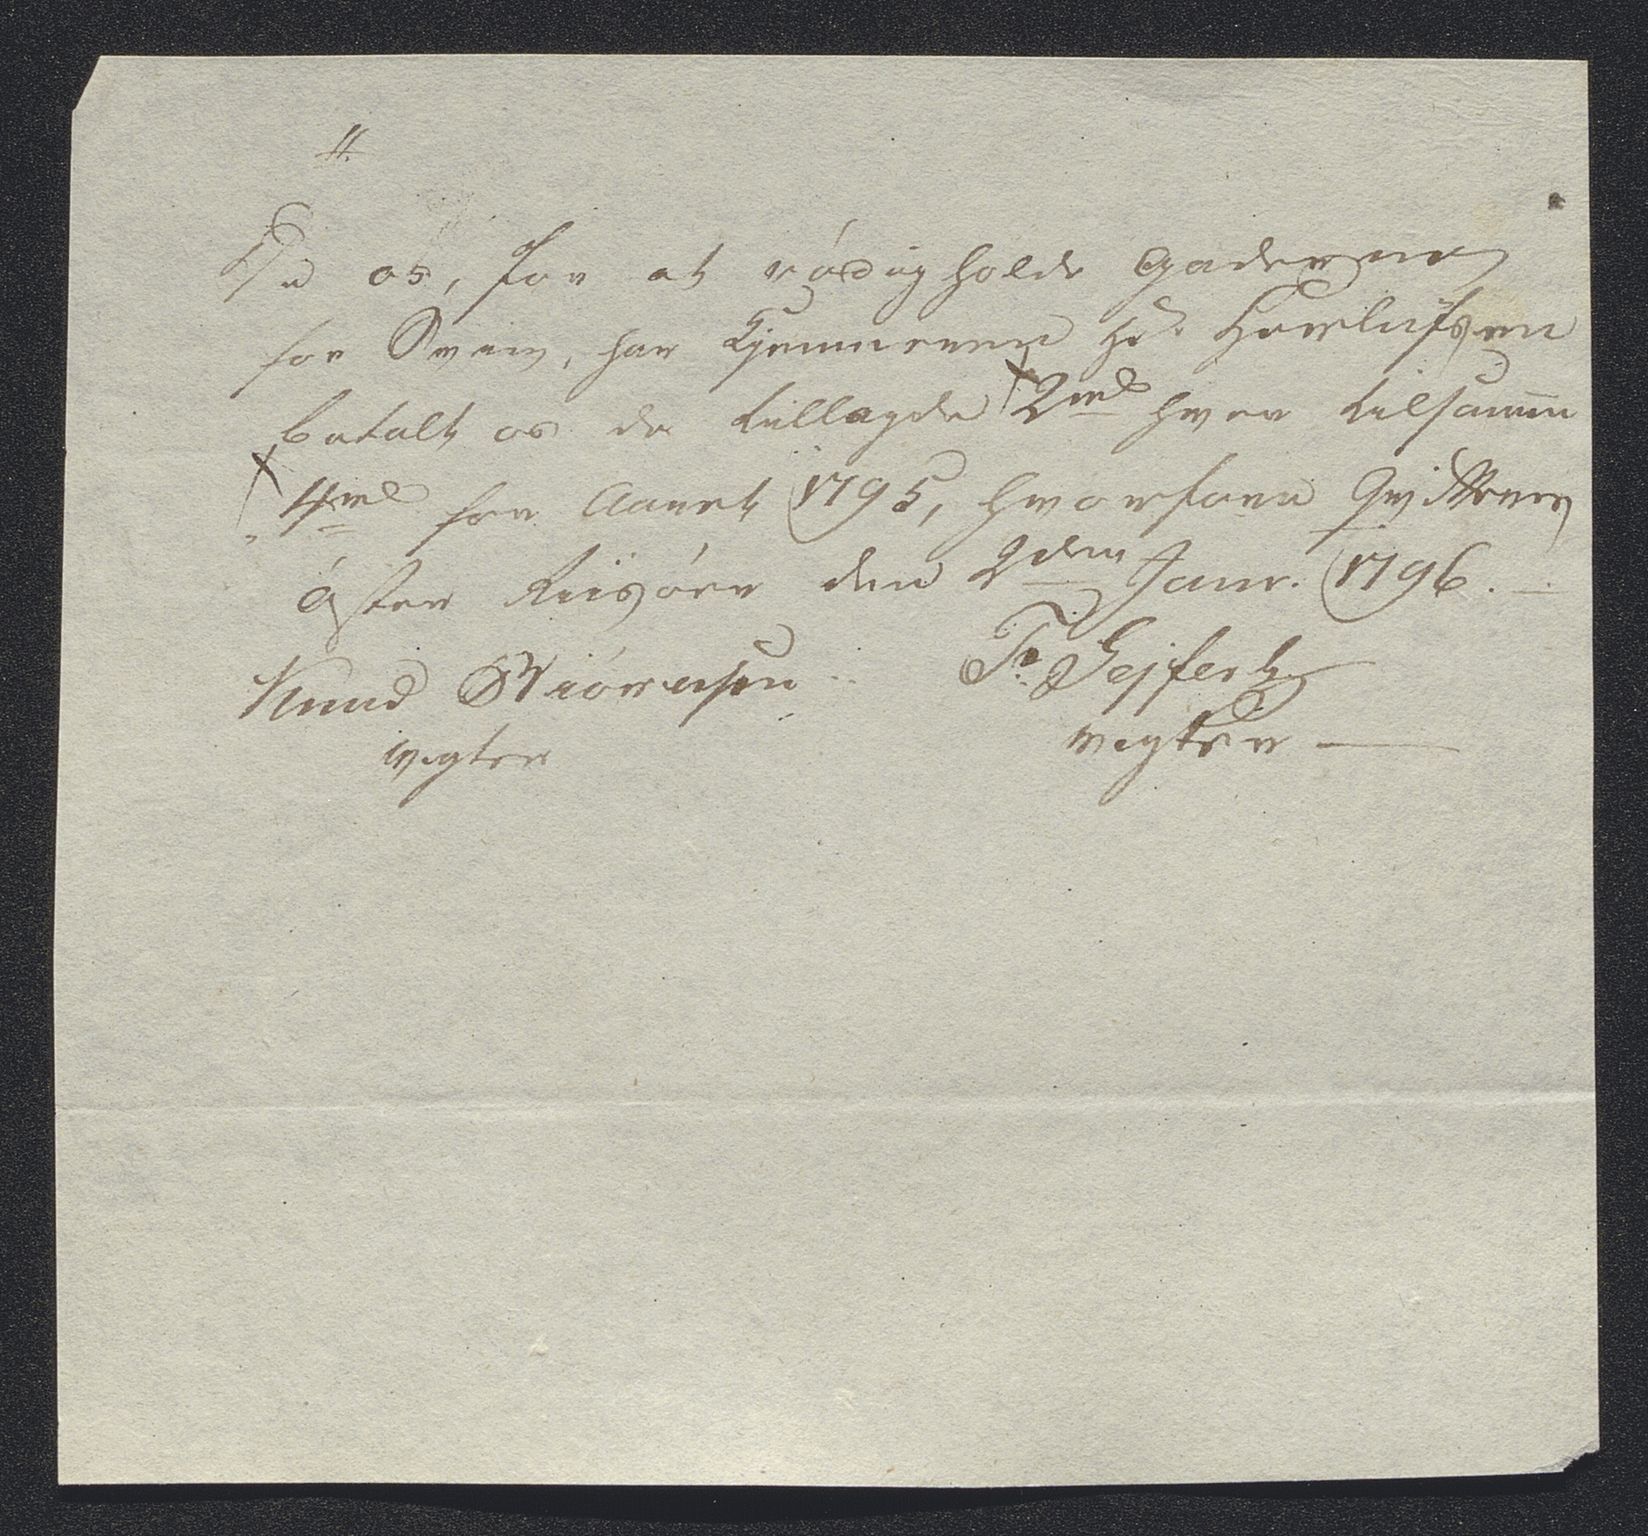 De os, for at rÿdig holde Gaderne
for Sviin, har Kjemneren Hr. Herlufsen
betalt os de tillagde 2 rd hver tilsamn
4 rd for Aaret 1795, hvorfore Qvitteres
Øster Riisøer den 2den Janr. 1796.
Knud Biørnsen Ts. Sejfertz
vegter vegter